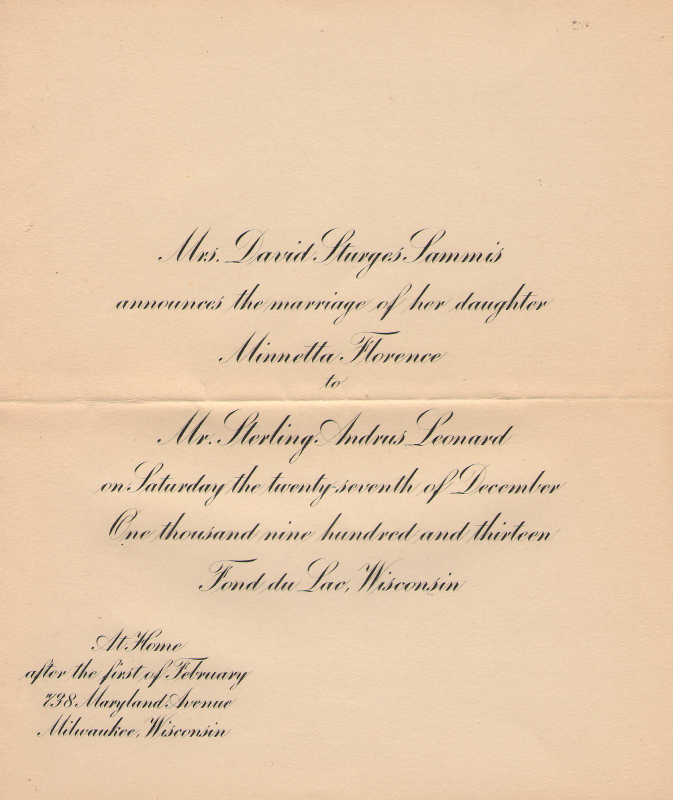 Mrs. David Sturges Sammis
announces the marriage of her daughter
Minnetta Florence
to
Mr. Sterling Andrus Leonard
on Saturday the twenty-seventh of December
One thousand nine hundred and thirteen
Fond du Lac, Wisconsin
At Home
after the first of February
738 Maryland Avenue
Milwaukee, Wisconsin